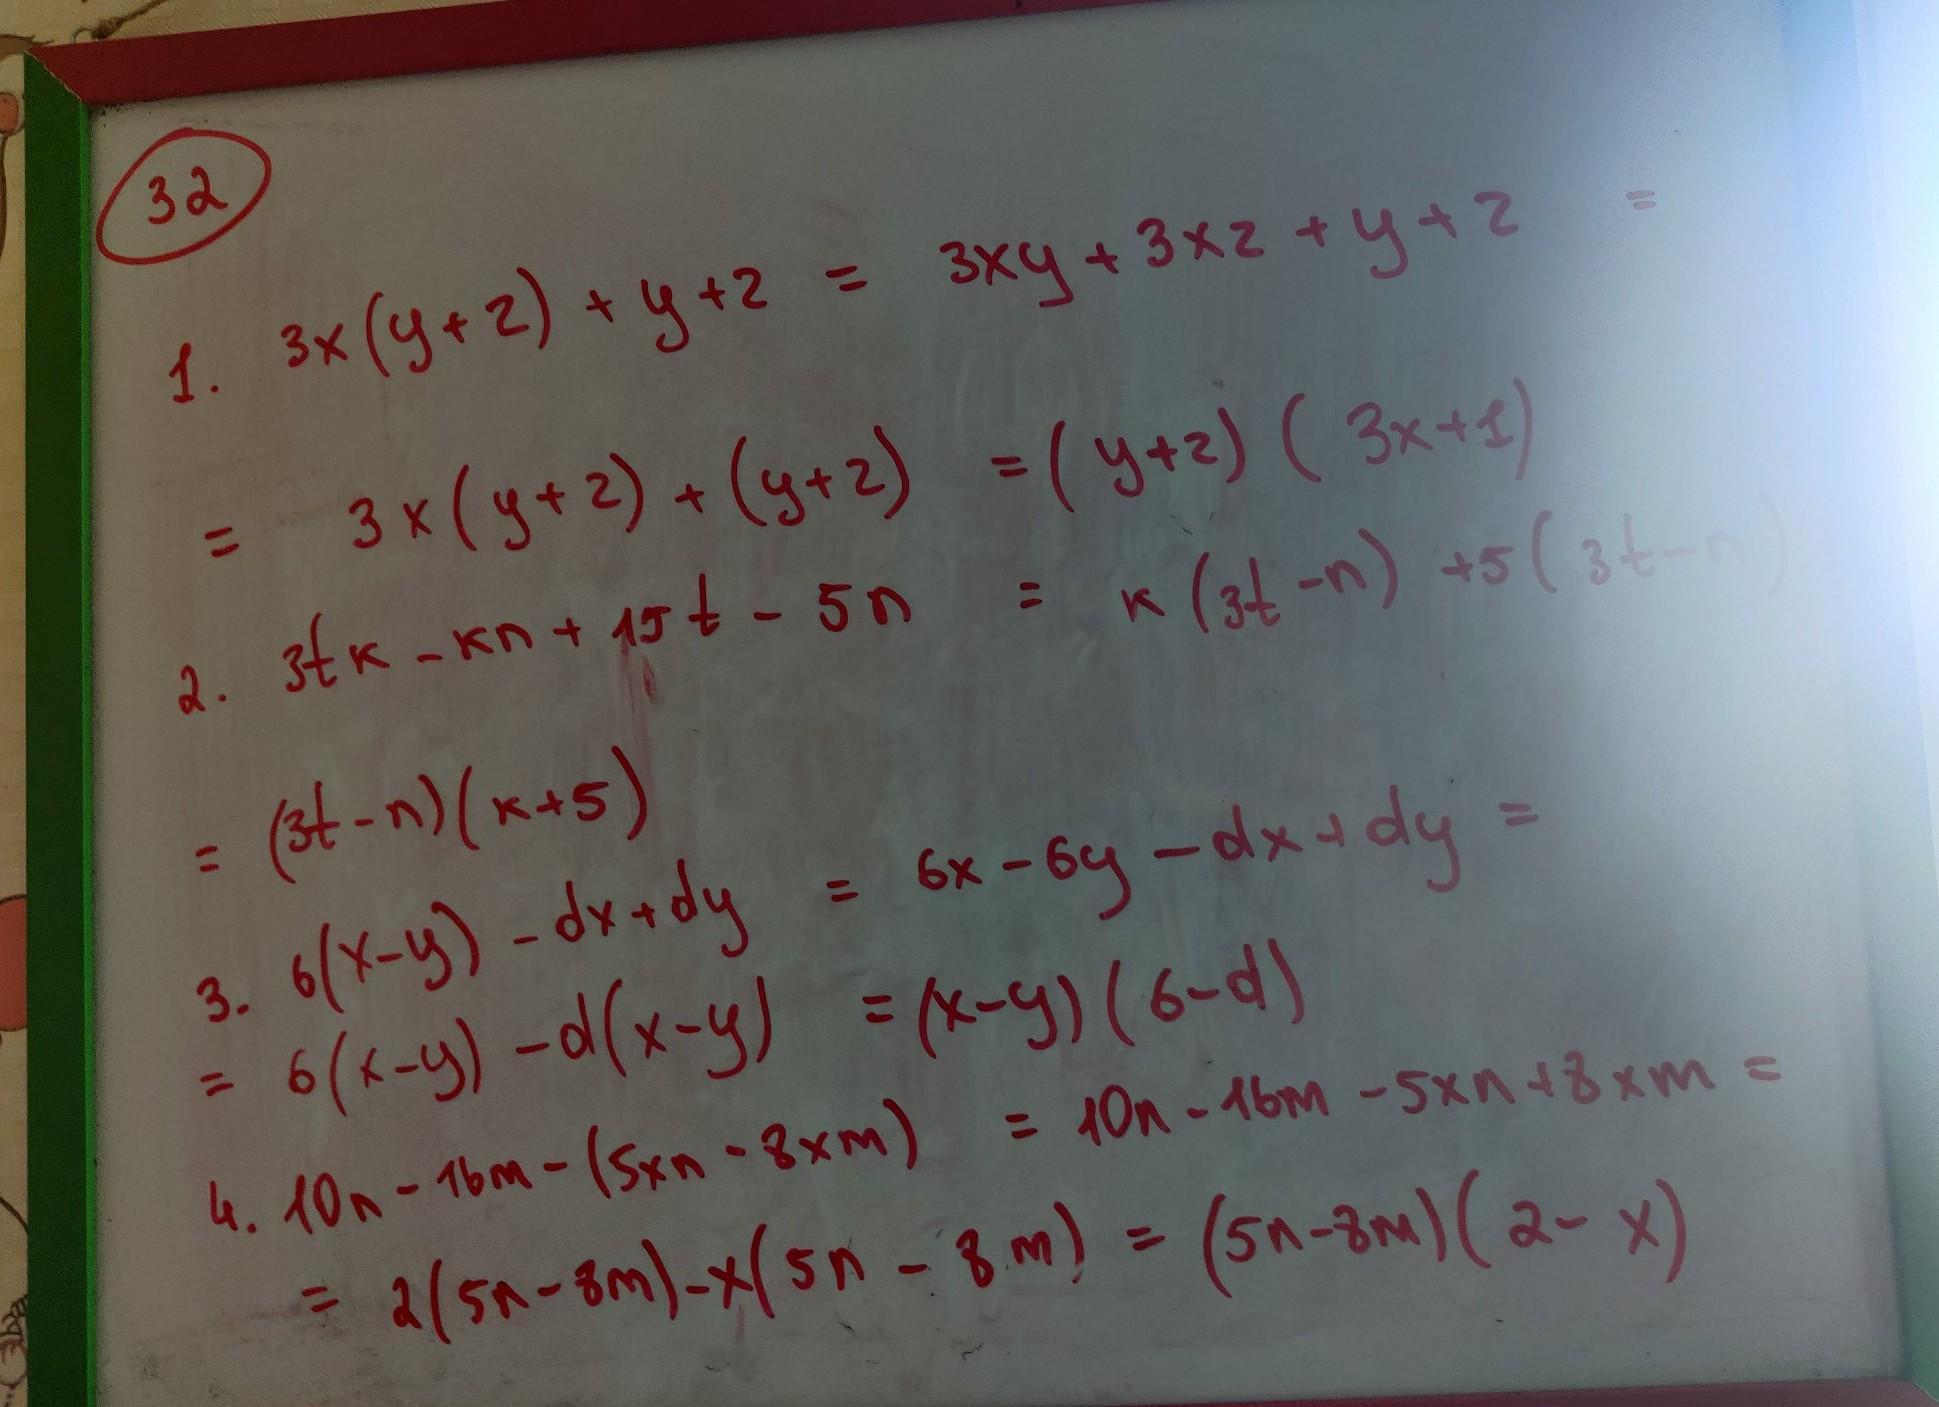 32
1. 3x(y+z)+y+z = 3xy+3xz+y+z =
= 3x(y+z)+(y+z) =(y+z)(3x+1)
2. 3tk-kn+15t-5n = k(3t-n)+5(3t-n)
= (3t-n)(k+5)
3. 6(x-y)-dx+dy = 6x-6y-dx+dy =
= 6(x-y)-d(x-y) =(x-y)(6-d)
4. 10n-16m-(5xn-8xm) = 10n-16m-5xn+8xm =
= 2(5n-8m)-x(5n-8m) = (5n-8m)(2-x)